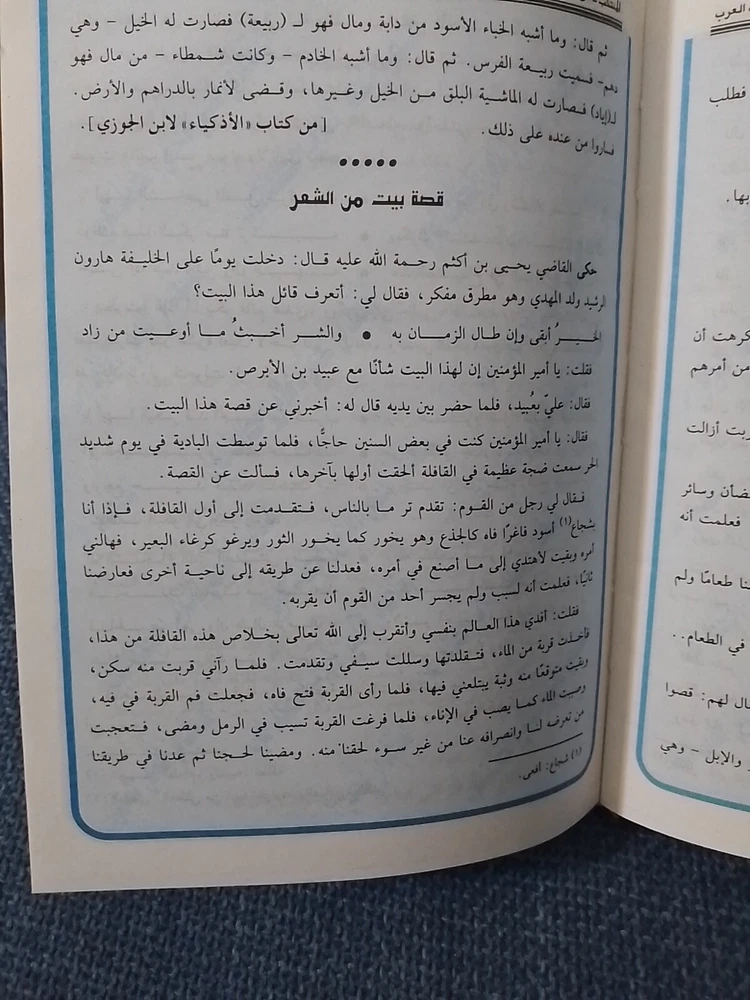 العرب
ثم قال: وما أشبه الخباء الأسود من دابة ومال فهو لـ (ربيعة) فصارت له الخيل - وهي
دهم- فسميت ربيعة الفرس. ثم قال: وما أشبه الخادم - وكانت شمطاء - من مال فهو
لـ(إياد) فصارت له الماشية البلق من الخيل وغيرها، وقضى لأنمار بالدراهم والأرض.
فساروا من عنده على ذلك. [من كتاب «الأذكياء» لابن الجوزي].
•••••
قصة بيت من الشعر
حكى القاضي يحيى بن أكثم رحمة الله عليه قال: دخلت يومًا على الخليفة هارون
الرشيد ولد المهدي وهو مطرق مفكر، فقال لي: أتعرف قائل هذا البيت؟
الخيرُ أبقى وإن طال الزمان به • والشر أخبثُ ما أوعيت من زاد
فقلت: يا أمير المؤمنين إن لهذا البيت شأنًا مع عبيد بن الأبرص.
فقال: عليّ بعُبيد، فلما حضر بين يديه قال له: أخبرني عن قصة هذا البيت.
فقال: يا أمير المؤمنين كنت في بعض السنين حاجًّا، فلما توسطت البادية في يوم شديد
الحر سمعت ضجة عظيمة في القافلة ألحقت أولها بآخرها، فسألت عن القصة.
فقال لي رجل من القوم: تقدم تر ما بالناس، فتقدمت إلى أول القافلة، فإذا أنا
بشجاع(١) أسود فاغرًا فاه كالجذع وهو يخور كما يخور الثور ويرغو كرغاء البعير، فهالني
أمره وبقيت لا أهتدي إلى ما أصنع في أمره، فعدلنا عن طريقه إلى ناحية أخرى فعارضنا
ثانيًا، فعلمت أنه لسبب ولم يجسر أحد من القوم أن يقربه.
فقلت: أفدي هذا العالم بنفسي وأتقرب إلى الله تعالى بخلاص هذه القافلة من هذا،
فأخذت قربة من الماء، فتقلدتها وسللت سيفي وتقدمت. فلما رآني قربت منه سكن،
وبقيت متوقعًا منه وثبة يبتلعني فيها، فلما رأى القربة فتح فاه، فجعلت فم القربة في فيه،
وصببت الماء كما يصب في الإناء، فلما فرغت القربة تسيب في الرمل ومضى، فتعجبت
من تعرضه لنا وانصرافه عنا من غير سوء لحقنا منه. ومضينا لحجنا ثم عدنا في طريقنا
(١) شجاع: أفعى.
فطلب
بها.
كرهت أن
من أمرهم
أزالت
وسائر
فعلمت أنه
طعامًا ولم
في الطعام..
لهم: قصوا
والإبل - وهي